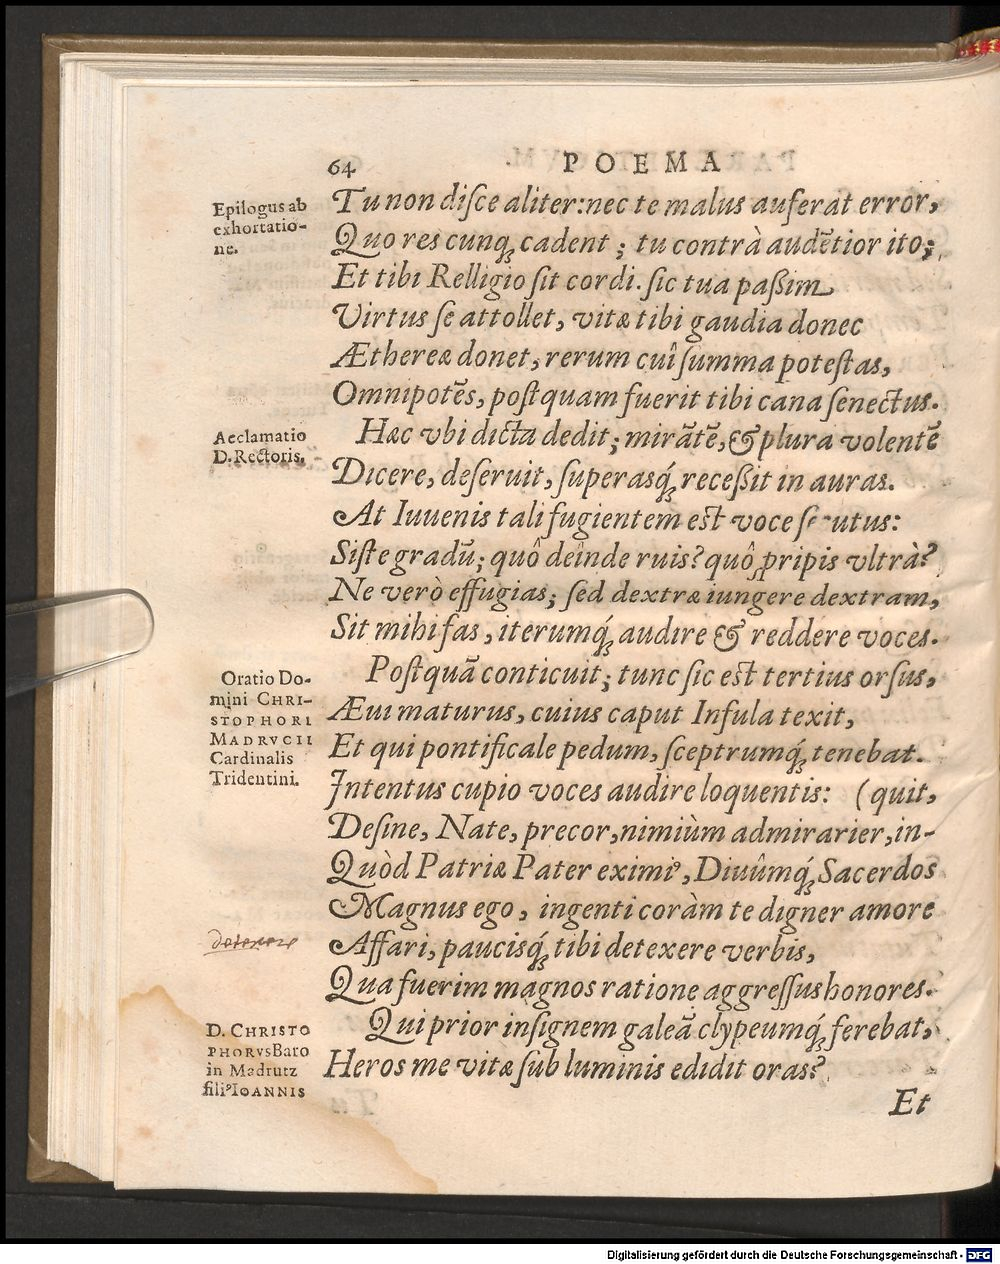 64 POEMA
Epilogus ab
exhortatio-
ne.
Tu non disce aliter: nec te malus auferat error,
Quo res cunq; cadent ; tu contrà audẽtior ito;
Et tibi Relligio sit cordi. sic tua paßim
Virtus se attollet, vitæ tibi gaudia donec
Æthereæ donet, rerum cuî summa potestas,
Omnipotẽs, postquam fuerit tibi cana senectus.
Acclamatio
D. Rectoris.
Hæc vbi dicta dedit; mirãtẽ, & plura volentẽ
Dicere, deseruit, superasq́; receßit in auras.
At Iuuenis tali fugientem est voce utus:
Siste gradũ; quô deînde ruis? quô ꝓripis vltrà?
Ne verò effugias; sed dextræ iungere dextram,
Sit mihi fas, iterumq́; audire & reddere voces.
Oratio Do-
mini CHRI-
STOPHORI
MADRVCII
Cardinalis
Tridentini.
Postquã conticuit; tunc sic est tertius orsus,
Æui maturus, cuius caput Infula texit,
Et qui pontificale pedum, sceptrumq́; tenebat.
Intentus cupio voces audire loquentis: (quit,
Desine, Nate, precor, nimiùm admirarier, in-
Quòd Patriæ Pater eximiꝰ, Diuûmq́; Sacerdos
Magnus ego, ingenti coràm te digner amore
detexere
Affari, paucisq́; tibi detexere verbis,
Qua fuerim magnos ratione aggressus honores.
D. CHRISTO
PHORVS Baro
in Madrutz
filiꝰ IOANNIS
Qui prior insignem galeã clypeumq́; ferebat,
Heros me vitæ sub luminis edidit oras?
Et
Digitalisierung gefördert durch die Deutsche Forschungsgemeinschaft - DFG